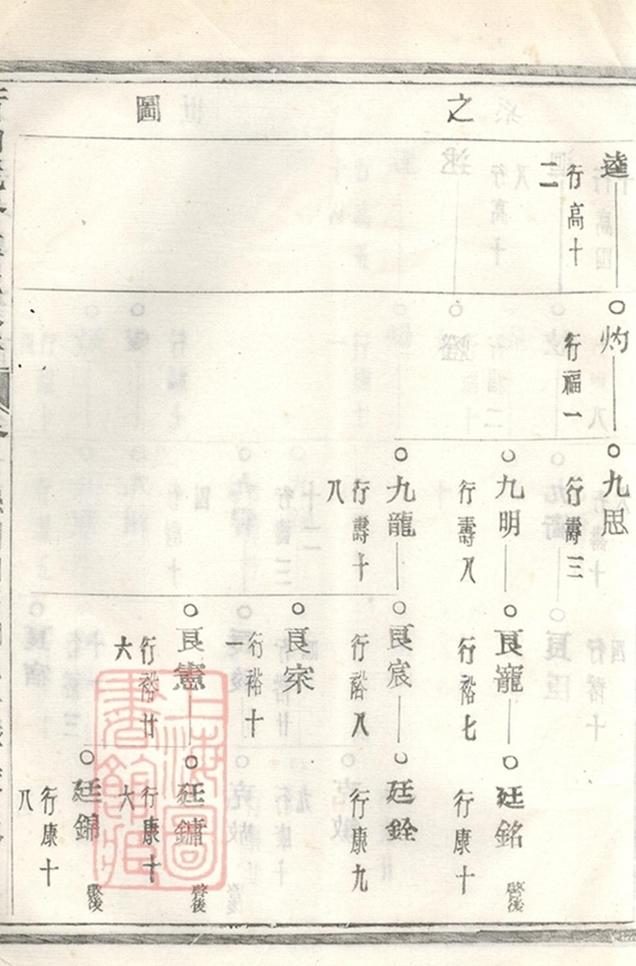 之
圖
行高十二
灼
行福一
九思
行壽三
九明
行壽八
九龍
行壽十八
良寵
行裕七
良宸
行裕八
良
行裕十一
良憲
行裕廿六
廷銘
行康十
廷銓
行康九
廷鏞
行康十六
廷錦
行康十八
上海圖書館藏